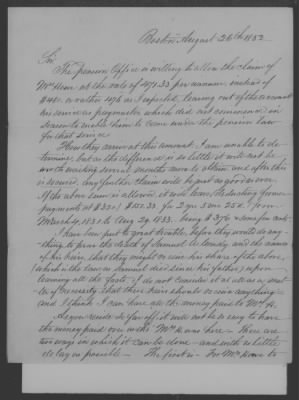 Boston August 26th 1852
Sir
The pension Office is willing to allow the claim of
Mr Howe at the rate of $97.33 per annum, instead of
or rather $96 as I expected, leaving out of the account
his service as paymaster which did not commence in
season to entitle him to come under the pension law
for that service
How they arrive at this amount I am unable to de-
termine, but as the difference is so little it will not be
worth waiting several months more to obtain one after this
is issued, any further claim will be just as good as now.
If the above sum is allowed, it will leave, deducting former
payment at $ for 2 yrs 5 mo 25 d. from
March 4, 1831 to Aug 29. 1833. being $376 & some few cents
I have been put to great trouble, before they would do any-
thing, to prove the death of Samuel and the names
of his heirs, that they might receive his share of the above,
(which is the law as Samuel died since his father) upon
learning all the facts I do not consider it at all as a mat-
ter of necessity that these heirs should receive anything
and I think I can have all the money paid to Mr H.
As you reside so far off it will not be so easy to have
the money paid over as tho' Mr Howe were here – There are
two ways in which it can be done – and with as little
delay as possible – The first is – For Mr Howe to